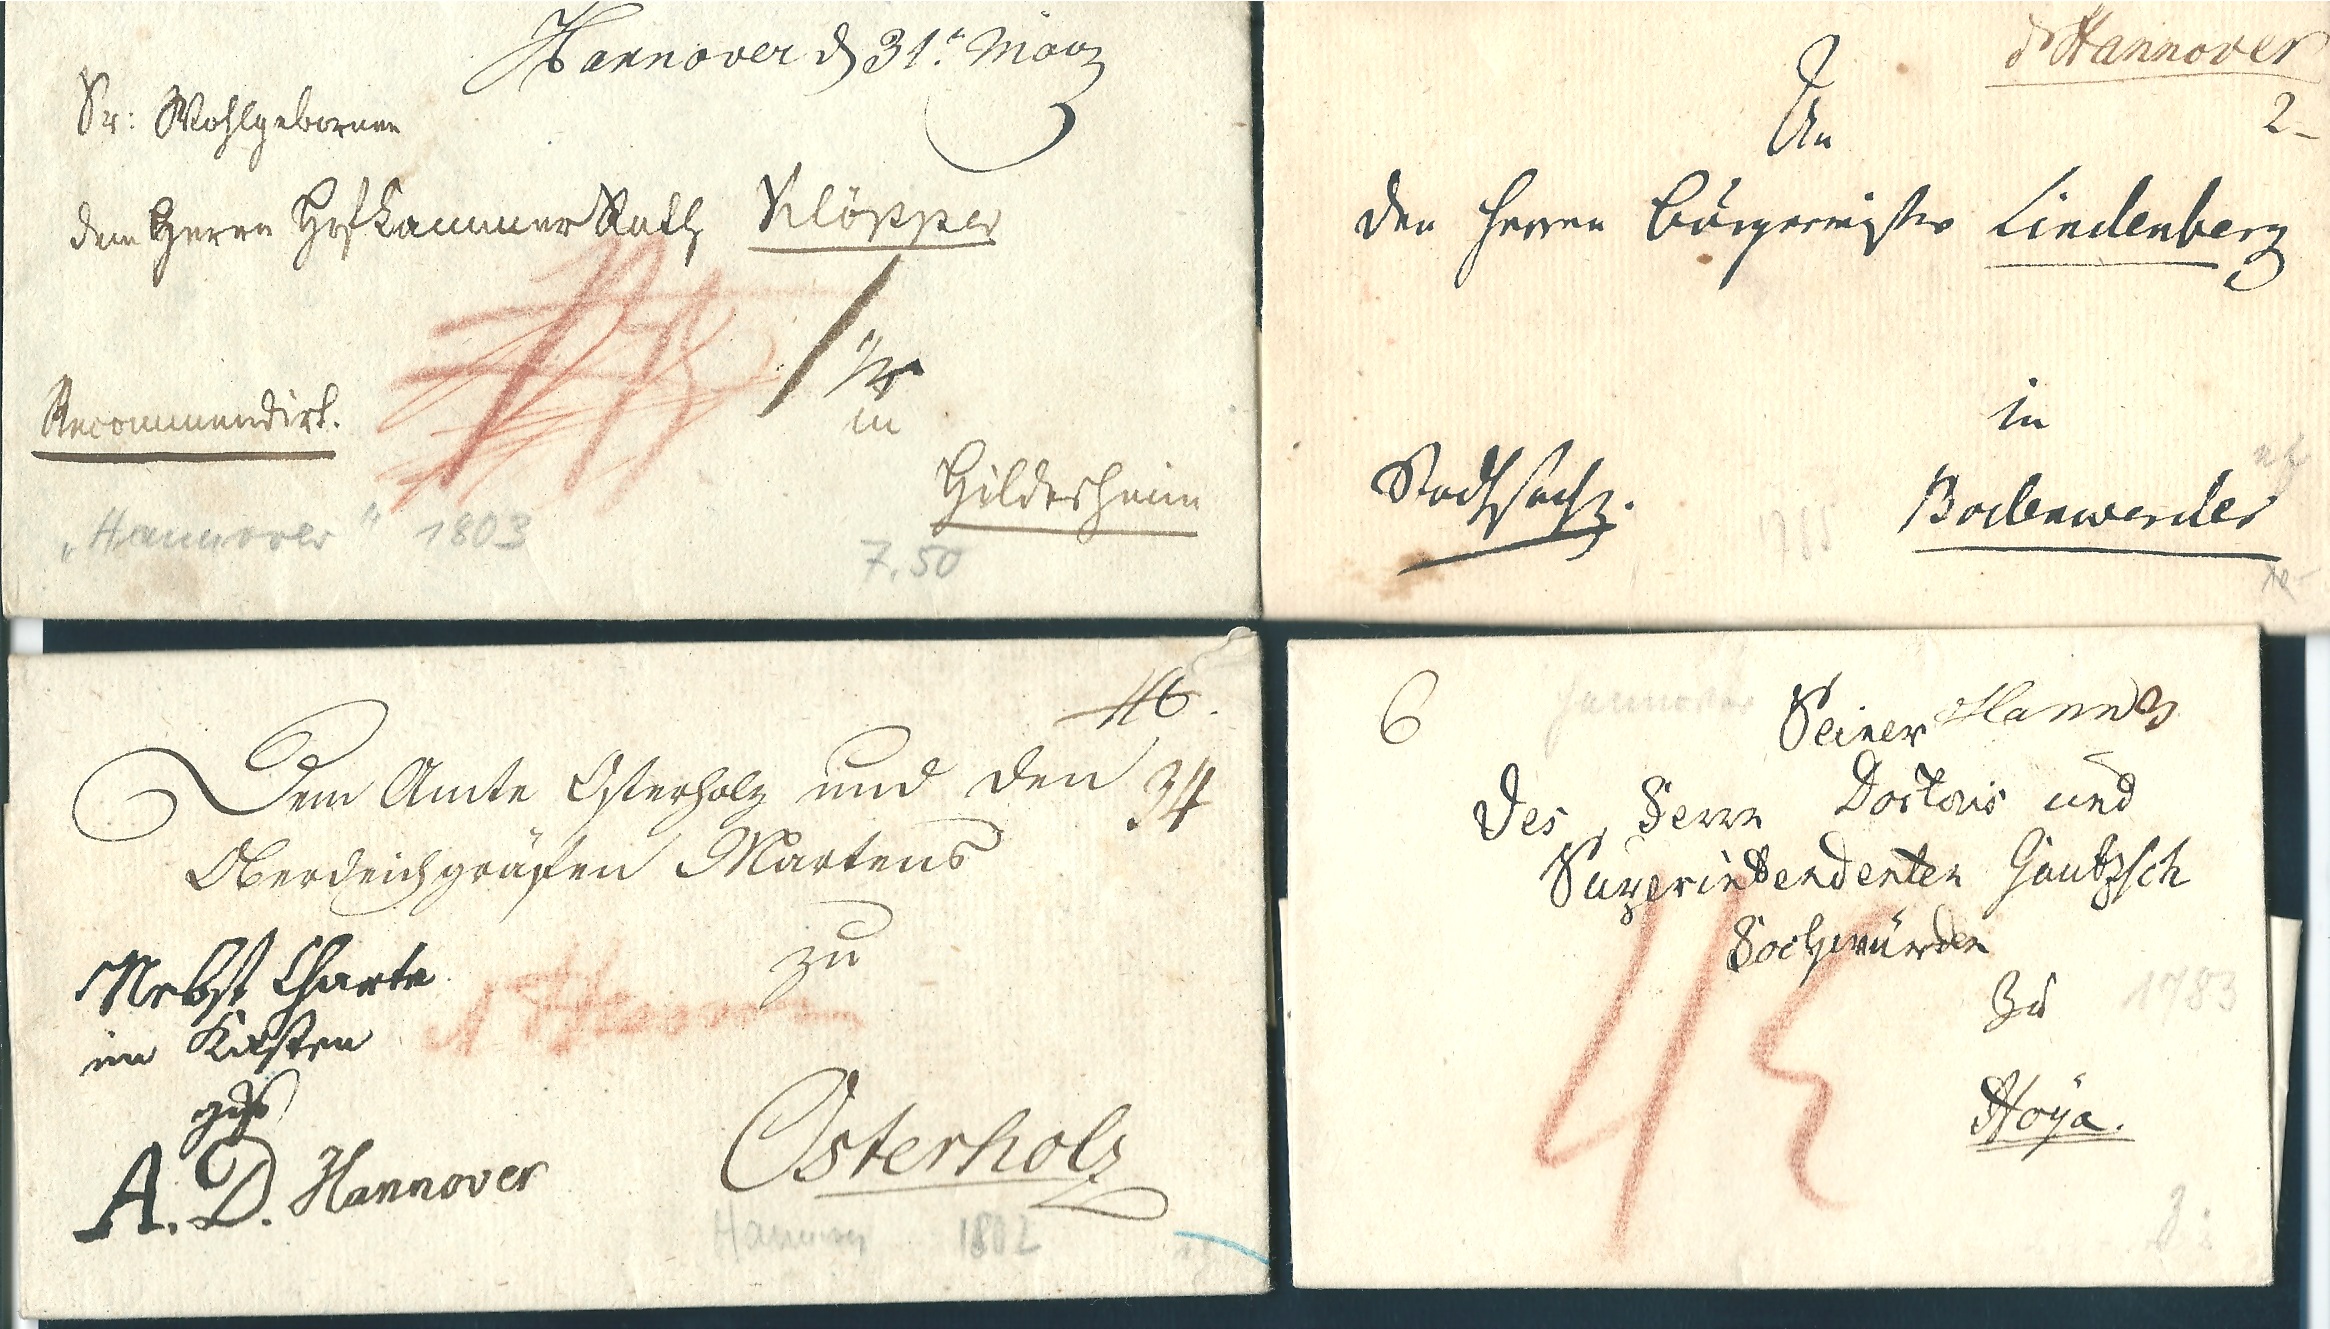 Hannover d 31t März
Sr: Wohlgebornen
dem Herrn Hofkammer Rath Klöpper
in
Recommendirt.
Hildesheim
„Hannover" 1803
7.50
d Hannover
2-
An
den Herren Bürgermeister Lindenberg
in
Stadtsache.
Bodenwerder
1785
Dem Amte Osterholz und den
34
Oberdeichgräfen Martens
zu
Nebst Charte
im Kasten
A. D. Hannover
Osterholz
Hannover 1802
6
Hannover
Seiner Hannov
des Herrn Doctoris und
Superintendenten Gautzsch
Hochwürden
Zu
1783
Hoÿa.